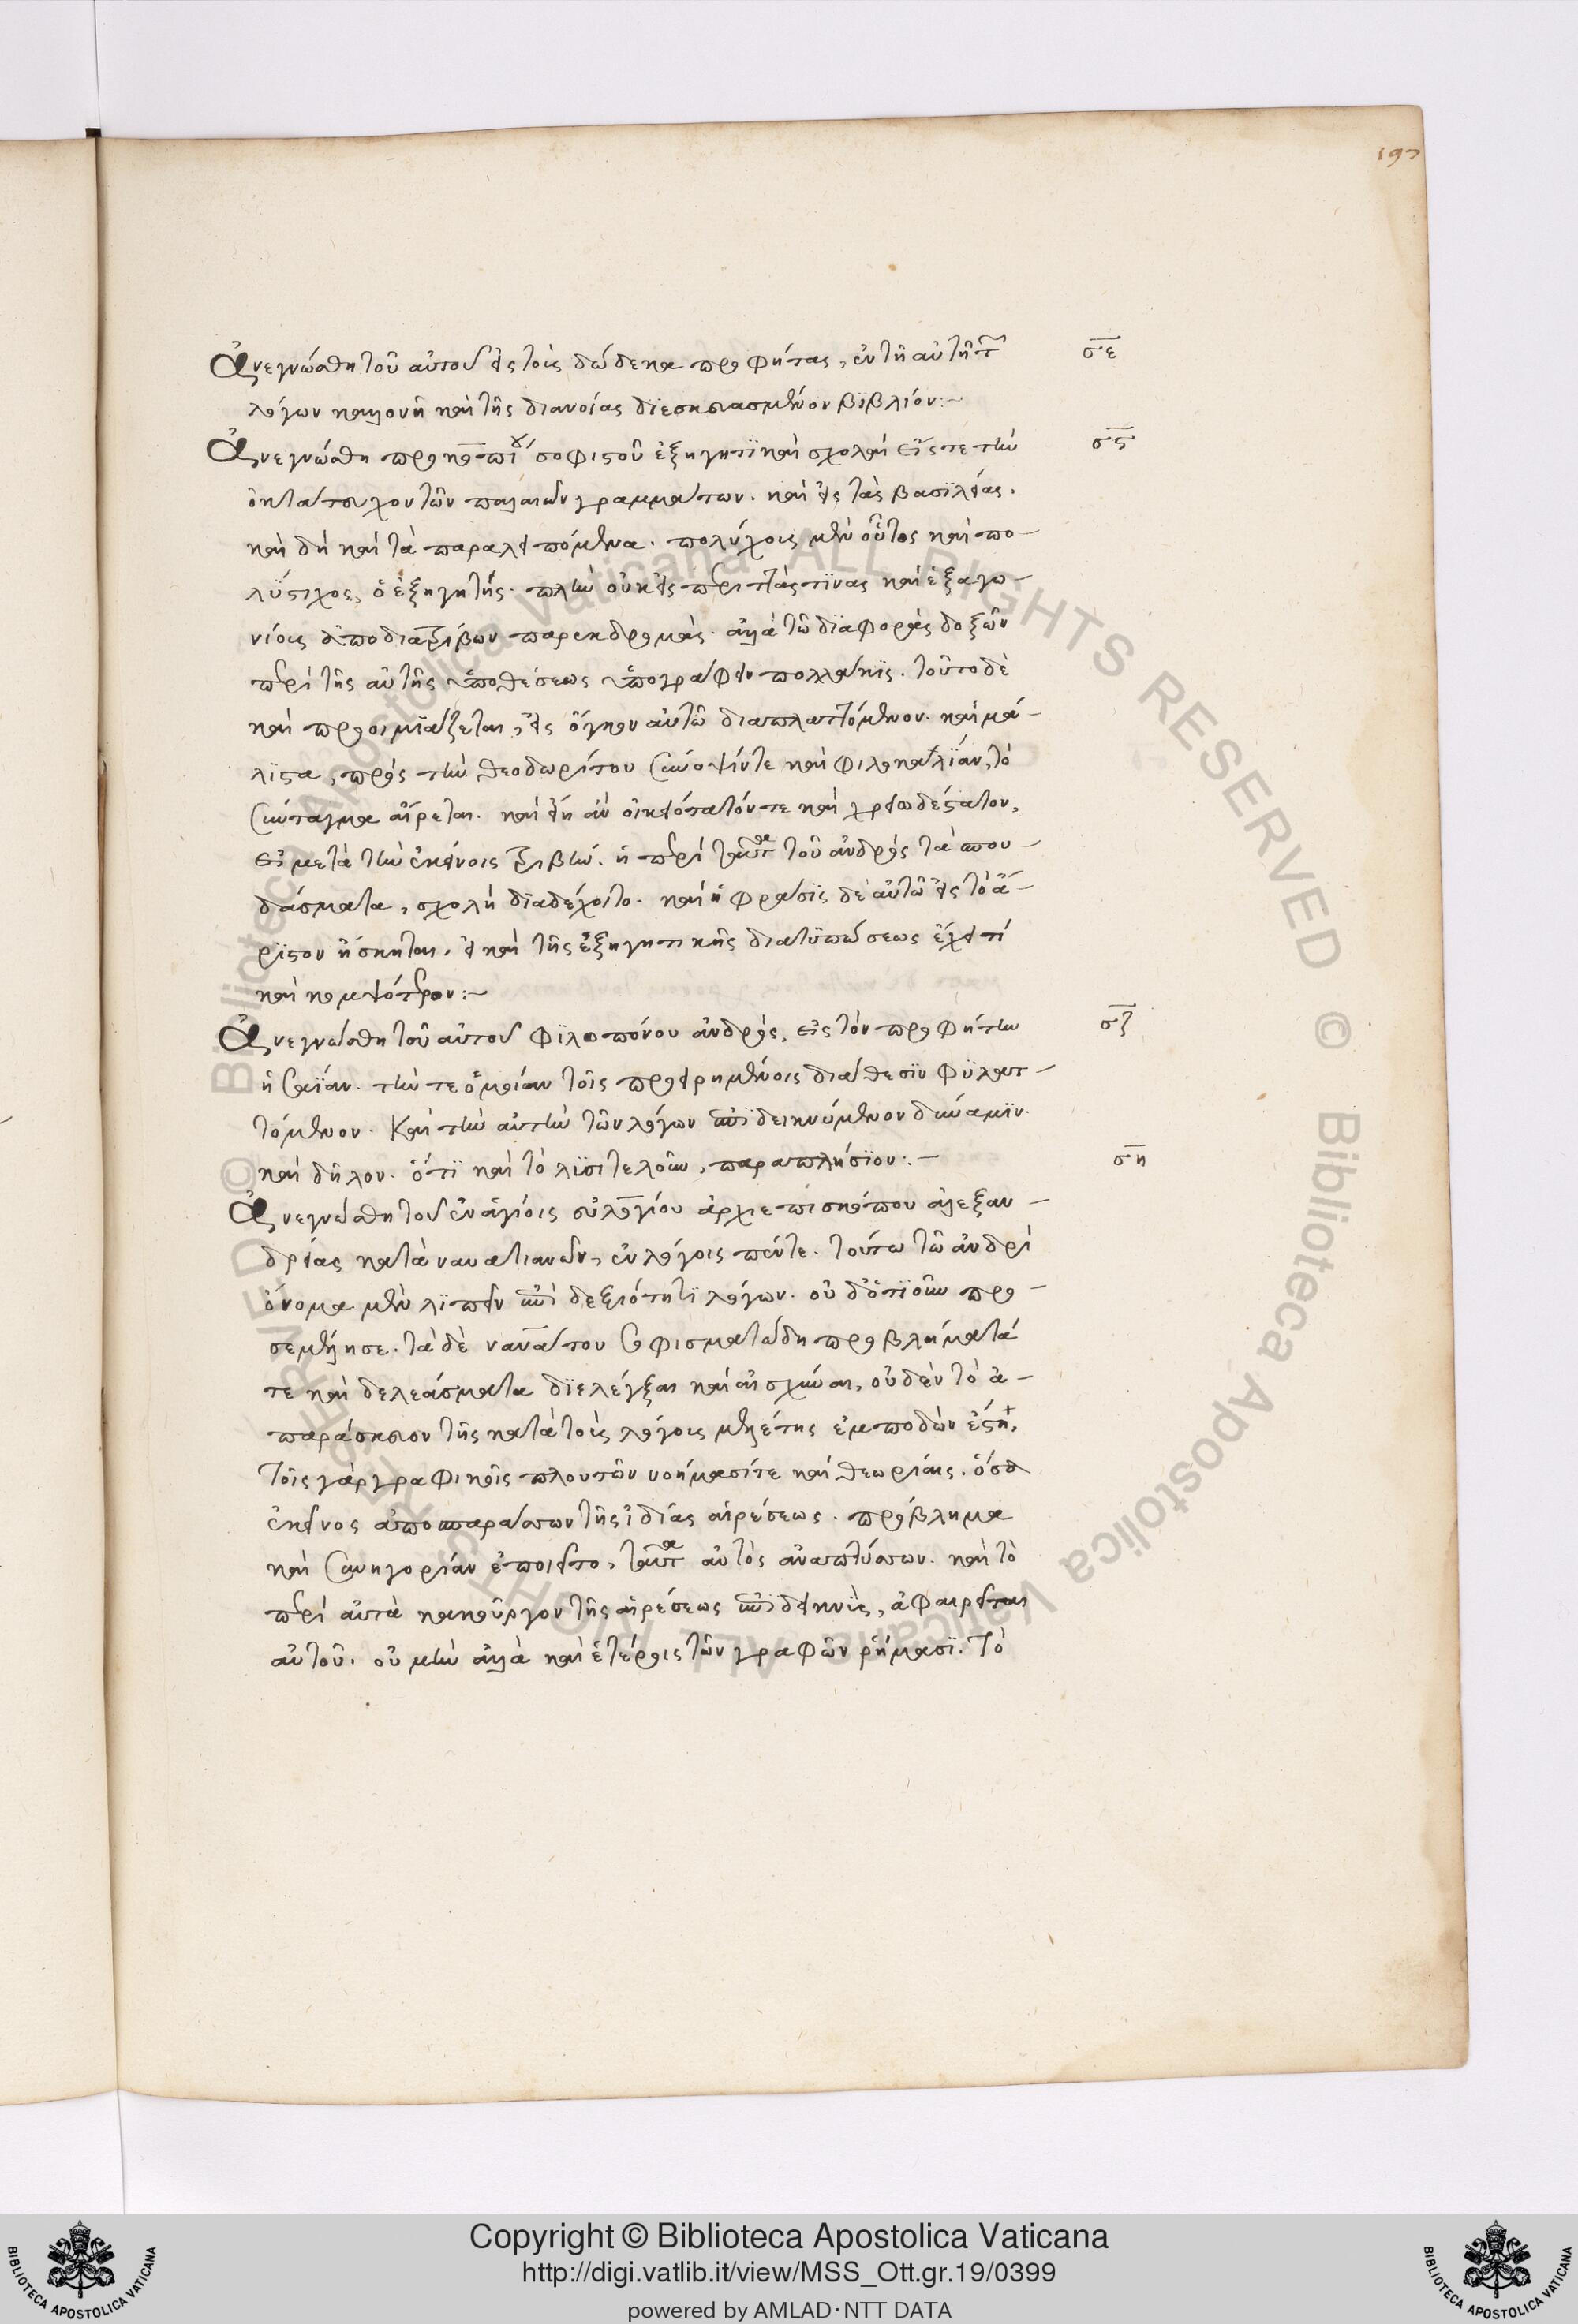 197
Ἀνεγνώσθη τοῦ αὐτοῦ εἰς τοὺς δώδεκα προφήτας, ἐν τῇ αὐτῇ τῶν σε
λόγων καλλονῇ καὶ τῆς διανοίας διεσκευασμένον βιβλίον:-
Ἀνεγνώσθη προκοπίου σοφιστοῦ ἐξηγητικαὶ σχολαὶ εἴς τε τὴν σϛ
ὀκτάτευχον τῶν παλαιῶν γραμμάτων. καὶ εἰς τὰς βασιλείας.
καὶ δὴ καὶ τὰ παραλειπόμενα. πολύχους μὲν οὗτος καὶ πο-
λύστιχος, ὁ ἐξηγητής. πλὴν οὐκ εἰς περιττάς τινας καὶ ἐξαγω-
νίους ἀποδιατρίβων παρεκδρομάς. ἀλλὰ τῷ διαφορὰς δοξῶν
περὶ τῆς αὐτῆς ὑποθέσεως ὑπογράφειν πολλάκις. τοῦτο δὲ
καὶ προοιμιάζεται, εἰς ὄγκον αὐτῷ διαπλαττόμενον. καὶ μά-
λιστα, πρὸς τὴν θεοδωρίτου σύνοψίν τε καὶ φιλοκαλίαν, τὸ
σύνταγμα αἴρεται. καὶ εἴη ἂν οἰκειότατόν τε καὶ χρειωδέστατον,
εἰ μετὰ τὴν ἐκείνοις τριβὴν. ἡ περὶ ταῦτα τοῦ ἀνδρὸς τὰ σπου-
δάσματα, σχολὴ διαδέχοιτο. καὶ ἡ φράσις δὲ αὐτῷ εἰς τὸ ἄ-
ριστον ἤσκηται, εἰ καὶ τῆς ἐξηγητικῆς διατυπώσεως ἔχει τί
καὶ κομψότερον:-
Ἀνεγνώσθη τοῦ αὐτοῦ φιλοπόνου ἀνδρὸς, εἰς τὸν προφήτην σζ
ἡσαΐαν. τήν τε ὁμοίαν τοῖς προειρημένοις διάθεσιν φυλατ-
τόμενον. Καὶ τὴν αὐτὴν τῶν λόγων ἐπιδεικνύμενον δύναμιν.
καὶ δῆλον. ὅτι καὶ τὸ λυσιτελοῦν, παραπλήσιον:.- ση
Ἀνεγνώσθη τοῦ ἐν ἁγίοις εὐλογίου ἀρχιεπισκόπου ἀλεξαν-
δρείας κατὰ ναυατιανῶν, ἐν λόγοις πέντε. τούτω τῷ ἀνδρὶ
ὄνομα μὲν λιπεῖν ἐπὶ δεξιότητι λόγων. οὐδ' ὁτιοῦν προ-
σεμέλησε. τὰ δὲ ναυάτου σοφισματώδη προβλήματά
τε καὶ δελεάσματα διελέγξαι καὶ αἰσχῦναι, οὐδὲν τὸ ἀ-
παράσκευον τῆς κατὰ τοὺς λόγους μελέτης ἐμποδὼν ἔστη.
Τοῖς γὰρ γραφικοῖς πλουτῶν νοήμασί τε καὶ θεωρίαις. ὅσα
ἐκεῖνος ἀποσπαράσσων τῆς ἰδίας αἱρέσεως. πρόβλημα
καὶ συνηγορίαν ἐποιεῖτο, ταῦτα αὐτὸς ἀναπτύσσων. καὶ τὸ
περὶ αὐτὰ κακοῦργον τῆς αἱρέσεως ἐπιδεικνὺς, ἀφαιρεῖται
αὐτοῦ. οὐ μὴν ἀλλὰ καὶ ἑτέροις τῶν γραφῶν ῥήμασι. Τὸ
Copyright © Biblioteca Apostolica Vaticana
http://digi.vatlib.it/view/MSS_Ott.gr.19/0399
powered by AMLAD·NTT DATA